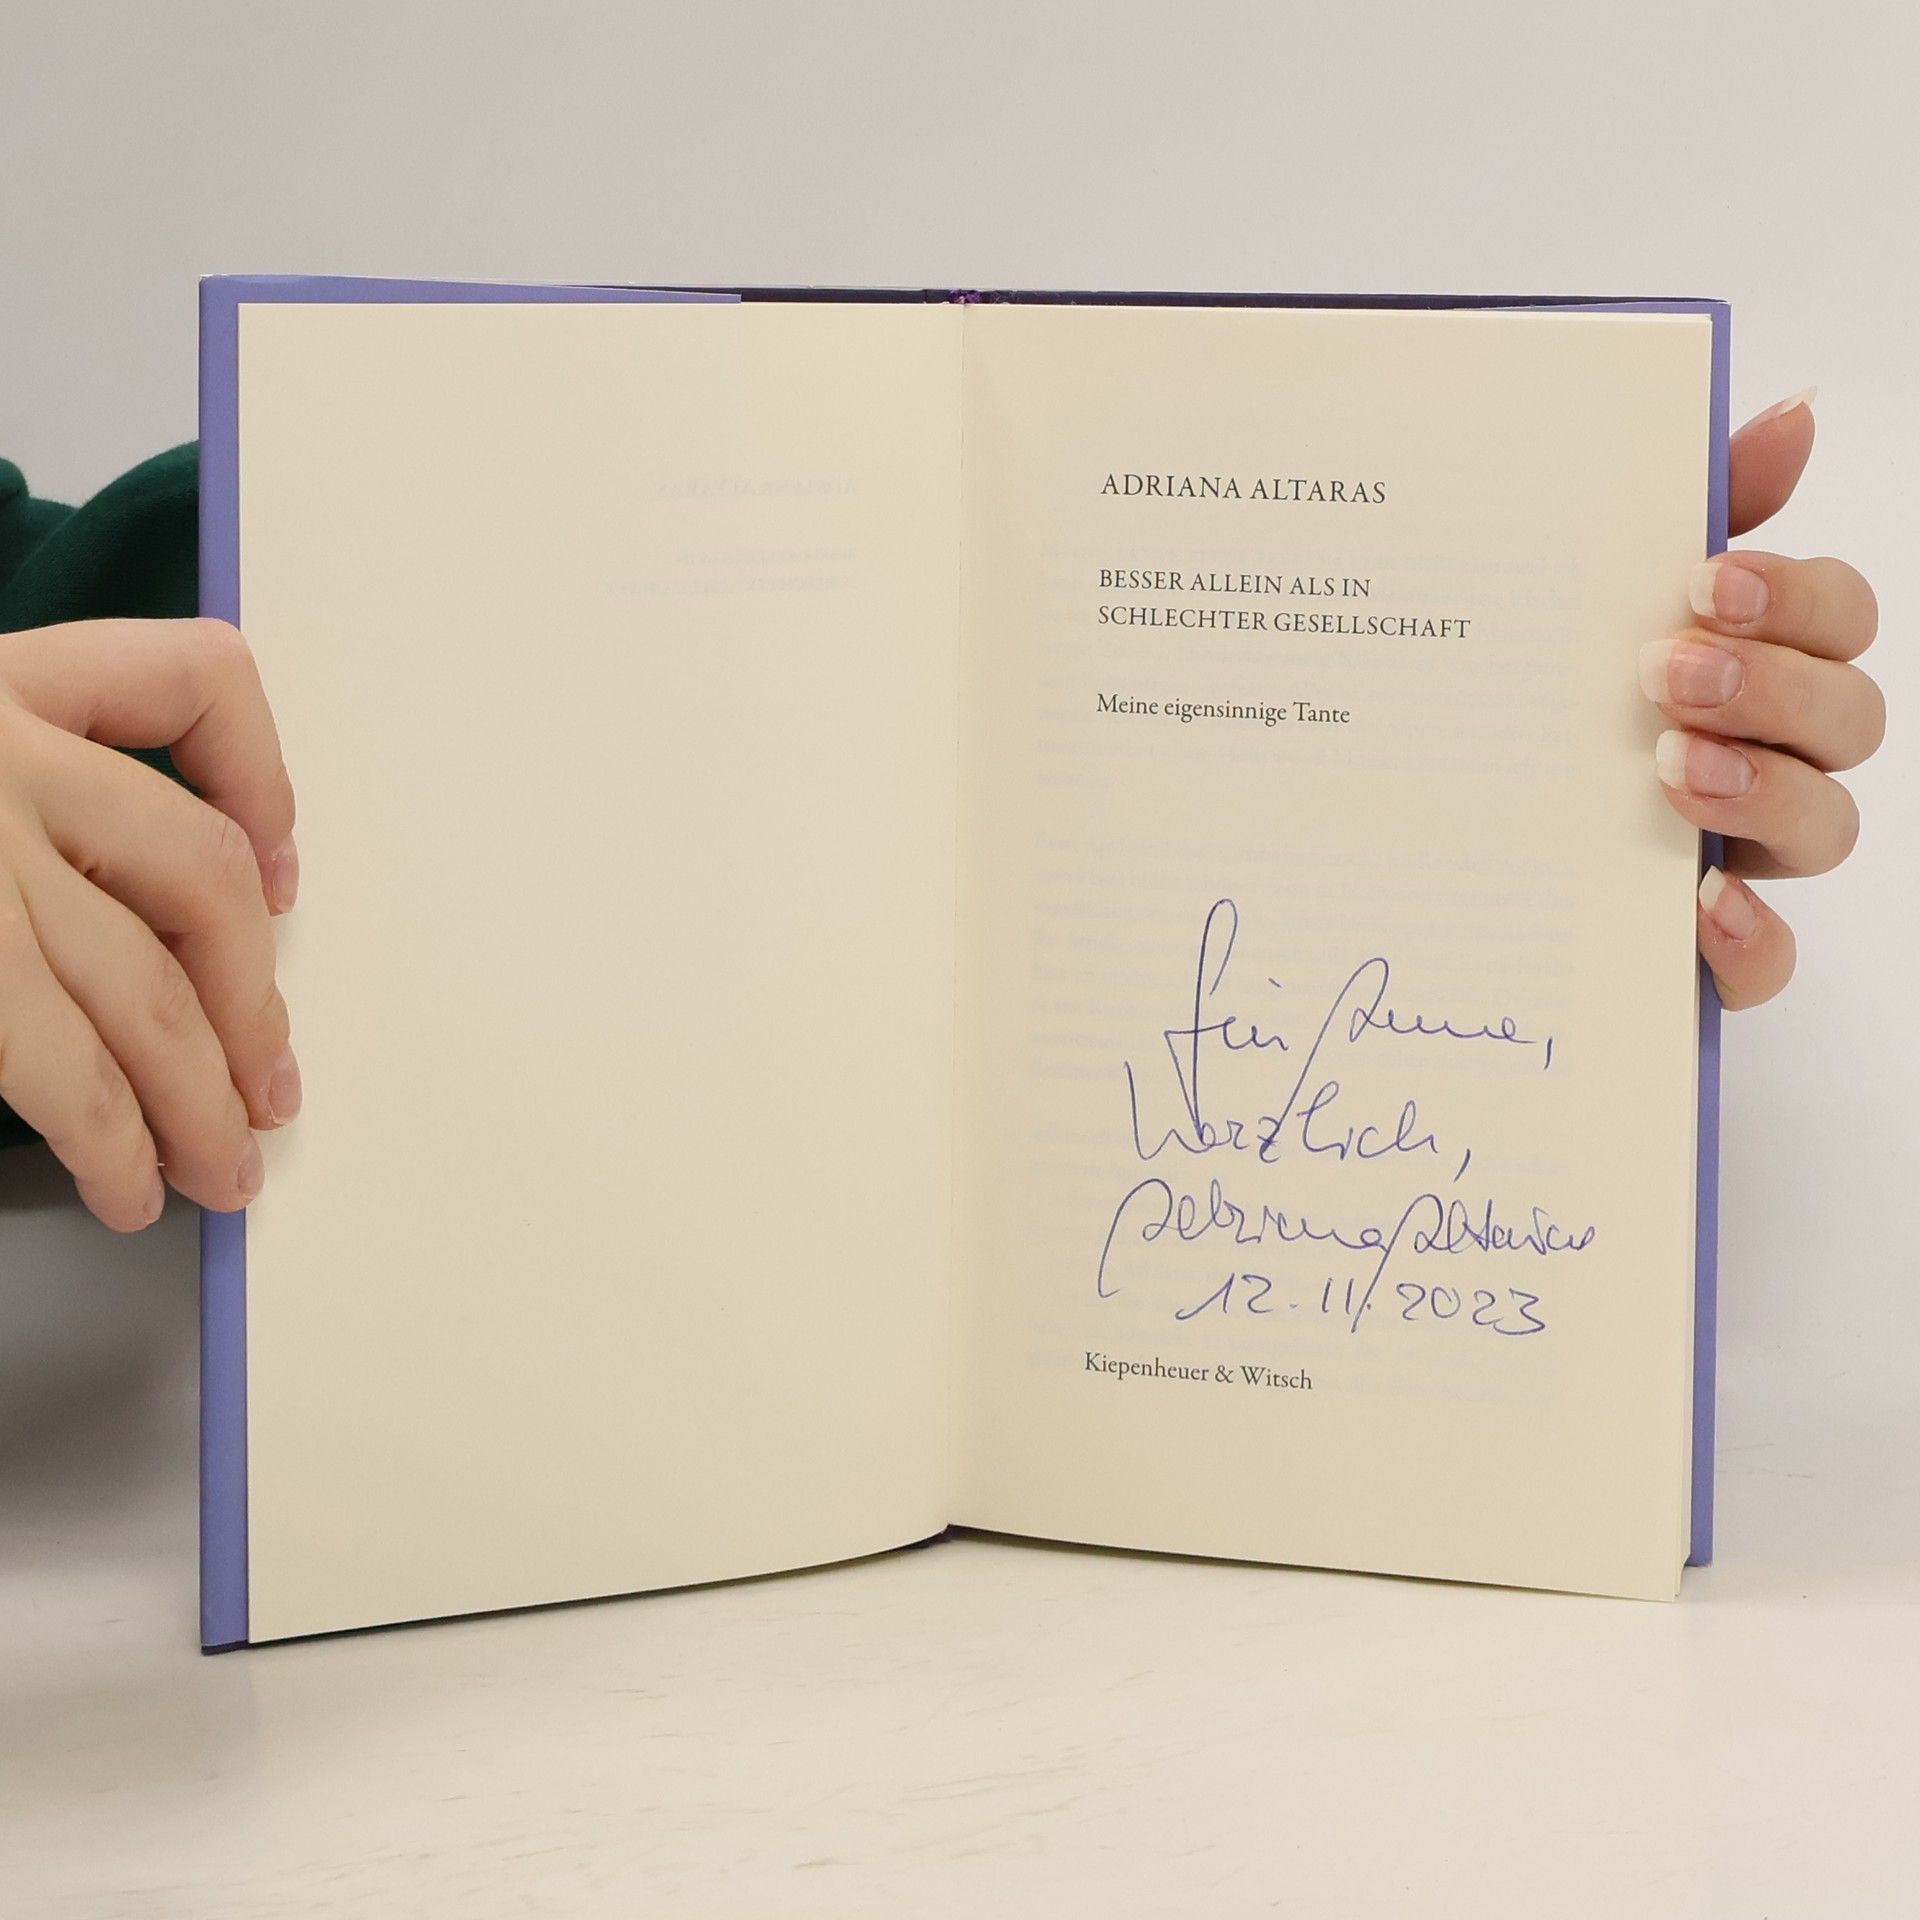 ADRIANA ALTARAS
BESSER ALLEIN ALS IN
SCHLECHTER GESELLSCHAFT
Meine eigensinnige Tante
für Anne,
herzlich,
Adriana Altaras
12.11.2023
Kiepenheuer & Witsch